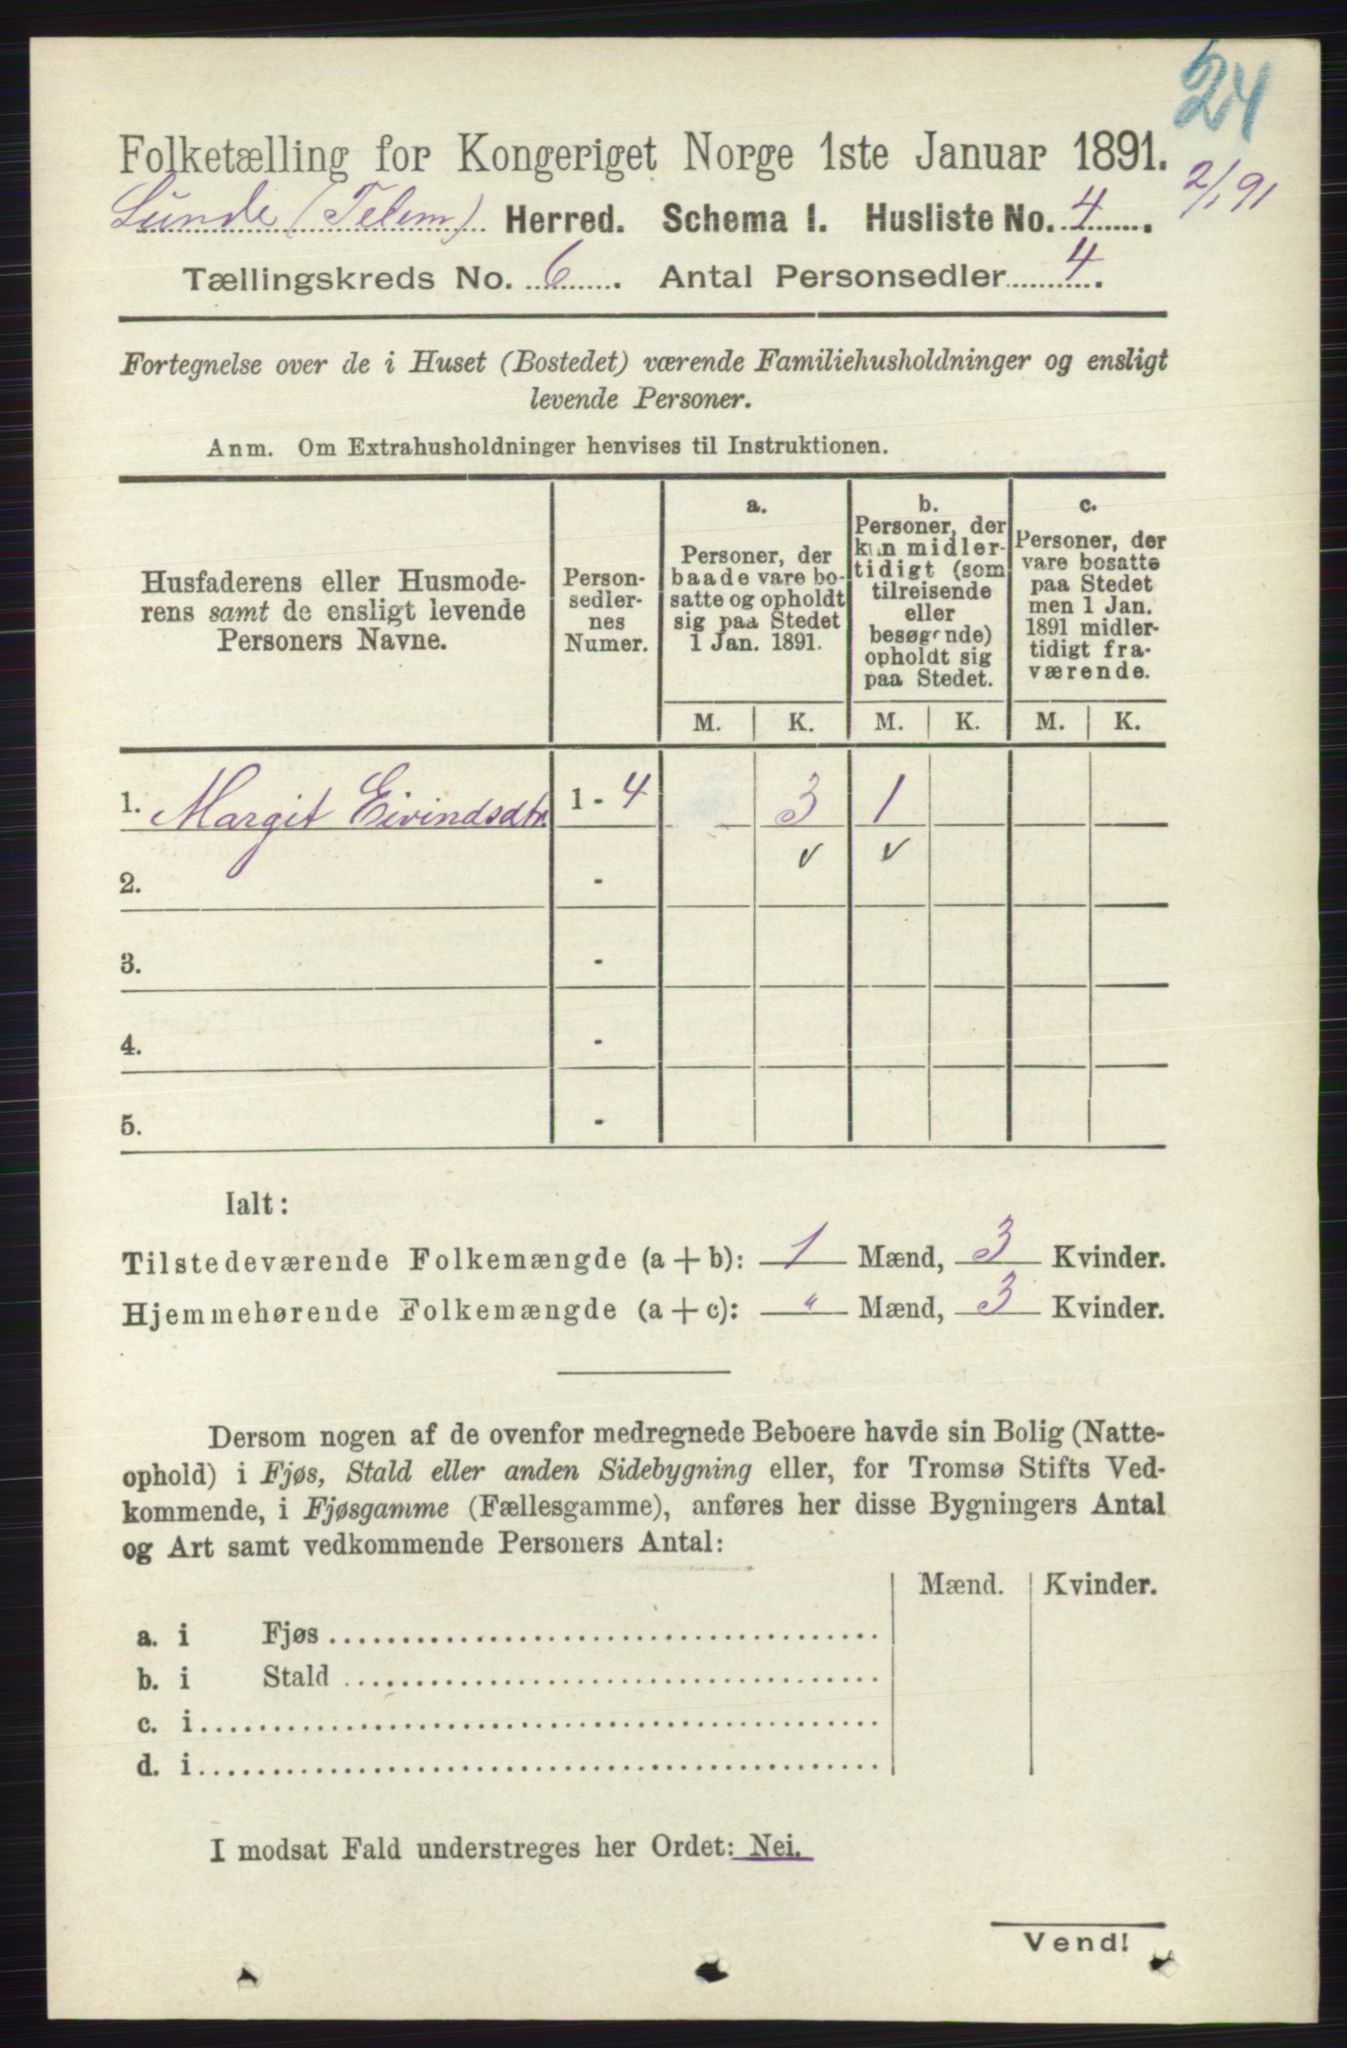 24
Folketælling for Kongeriget Norge 1ste Januar 1891.
2/1 91
Lunde (Telem) Herred. Schema 1. Husliste No. 4.
Tællingskreds No. 6. Antal Personsedler 4.
Fortegnelse over de i Huset (Bostedet) værende Familiehusholdninger og ensligt
levende Personer.
Anm. Om Extrahusholdninger henvises til Instruktionen.
Husfaderens eller Husmode-
rens samt de ensligt levende
Personers Navne.
Person-
sedler-
nes
Numer.
a.
Personer, der
baade vare bo-
satte og opholdt
sig paa Stedet
1 Jan. 1891.
b.
Personer, der
kun midler-
tidigt (som
tilreisende
eller
besøgende)
opholdt sig
paa Stedet.
c.
Personer, der
vare bosatte
paa Stedet
men 1 Jan.
1891 midler-
tidigt fra-
værende.
M. K. M. K. M. K.
1. Margit Eivindsdtr. 1 - 4 3 1
2. - v v
3. -
4. -
5. -
Ialt:
Tilstedeværende Folkemængde (a + b): 1 Mænd, 3 Kvinder.
Hjemmehørende Folkemængde (a + c): " Mænd, 3 Kvinder.
Dersom nogen af de ovenfor medregnede Beboere havde sin Bolig (Natte-
ophold) i Fjøs, Stald eller anden Sidebygning eller, for Tromsø Stifts Ved-
kommende, i Fjøsgamme (Fællesgamme), anføres her disse Bygningers Antal
og Art samt vedkommende Personers Antal:
Mænd. Kvinder.
a. i Fjøs
b. i Stald
c. i
d. i
I modsat Fald understreges her Ordet: Nei.
Vend!